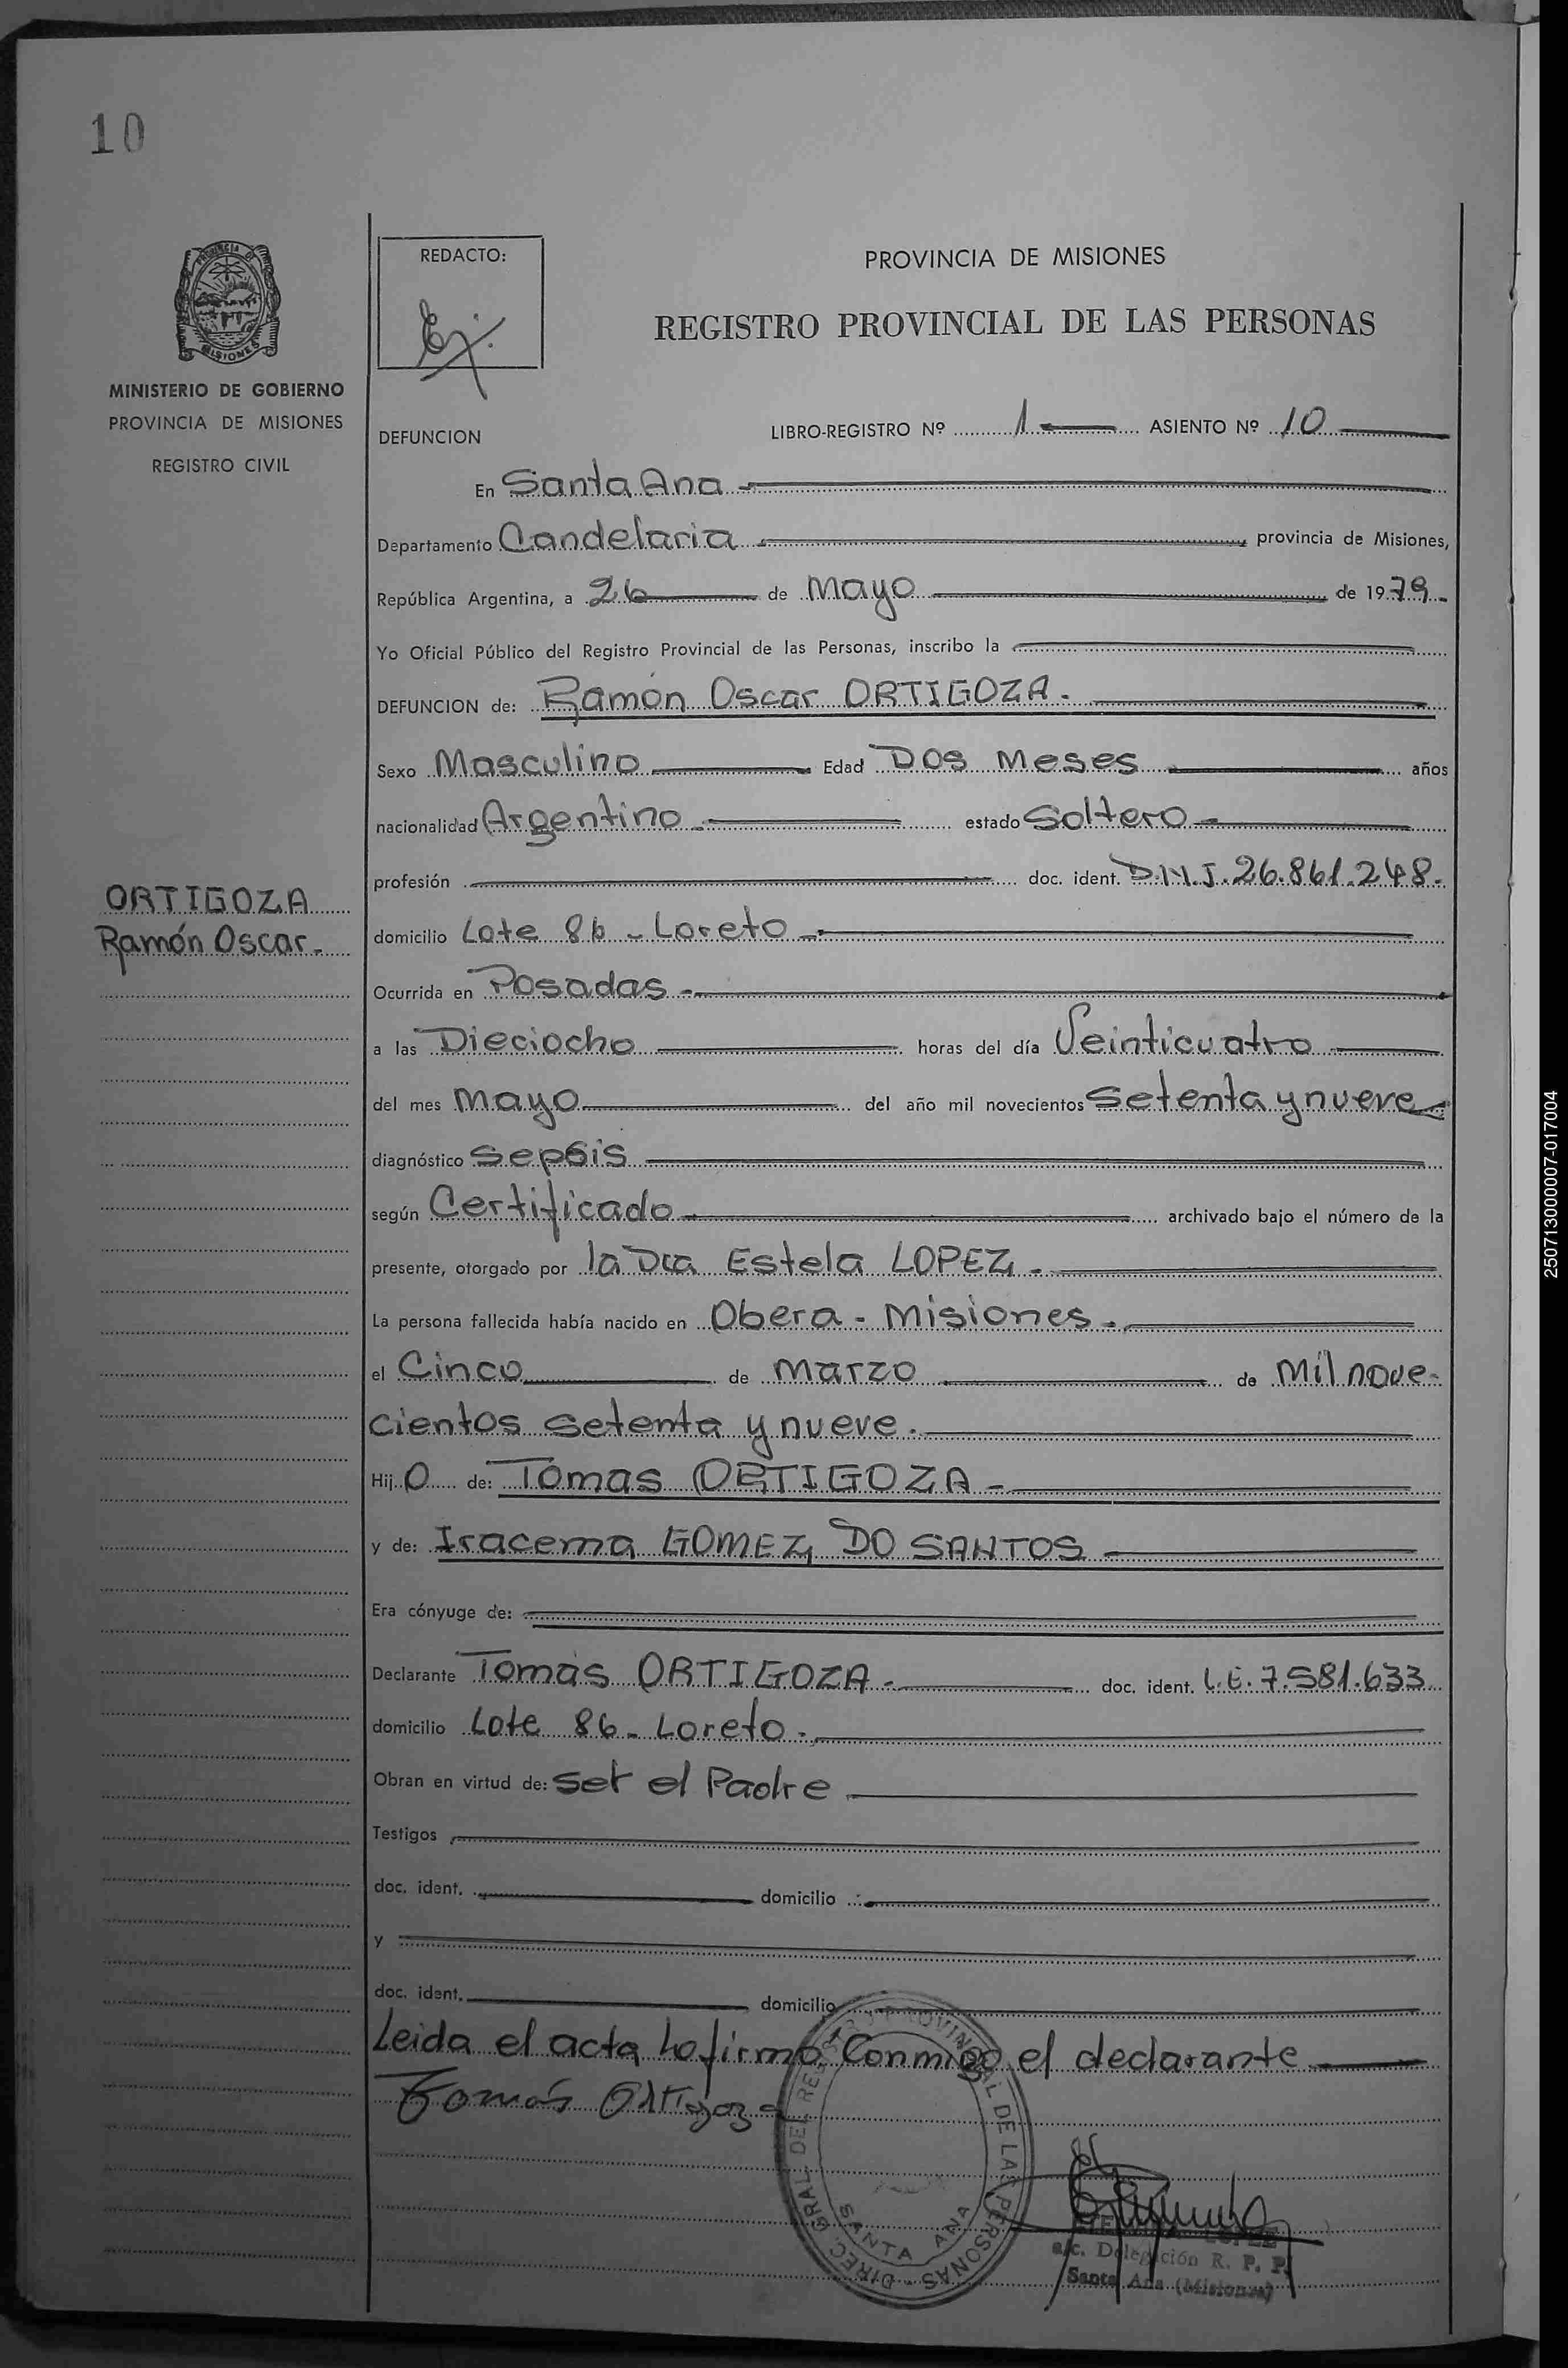 10
PROVINCIA DE MISIONES
MINISTERIO DE GOBIERNO
PROVINCIA DE MISIONES
REGISTRO CIVIL
REDACTO:
PROVINCIA DE MISIONES
REGISTRO PROVINCIAL DE LAS PERSONAS
DEFUNCION LIBRO-REGISTRO Nº 1 ASIENTO Nº 10
En Santa Ana
Departamento Candelaria provincia de Misiones,
República Argentina, a 26 de Mayo de 1979.
Yo Oficial Público del Registro Provincial de las Personas, inscribo la
DEFUNCION de: Ramón Oscar ORTIGOZA.
Sexo Masculino Edad Dos Meses años
nacionalidad Argentino estado Soltero
profesión doc. ident. D.N.I. 26.861.248.
ORTIGOZA
Ramón Oscar.
domicilio Lote 86 - Loreto
Ocurrida en Posadas
a las Dieciocho horas del día Veinticuatro
del mes Mayo del año mil novecientos Setenta y nueve
diagnóstico Sepsis
según Certificado archivado bajo el número de la
presente, otorgado por la Dra Estela LOPEZ.
La persona fallecida había nacido en Obera - Misiones.
el Cinco de Marzo de Mil nove-
cientos setenta y nueve.
Hijo de: Tomas ORTIGOZA
y de: Iracema GOMEZ DO SANTOS
Era cónyuge de:
Declarante Tomás ORTIGOZA. doc. ident. L.E. 7.581.633
domicilio Lote 86 - Loreto.
Obran en virtud de: Ser el Padre
Testigos
doc. ident. domicilio
y
doc. ident. domicilio
Leida el acta la firmó Conmigo el declarante
Tomás Ortigoza
DIREC. GRAL. DEL REGISTRO PROVINCIAL DE LAS PERSONAS
SANTA ANA
LOPEZ
a/c. Delegación R. P. P.
Santa Ana (Misiones)
250713000007-017004